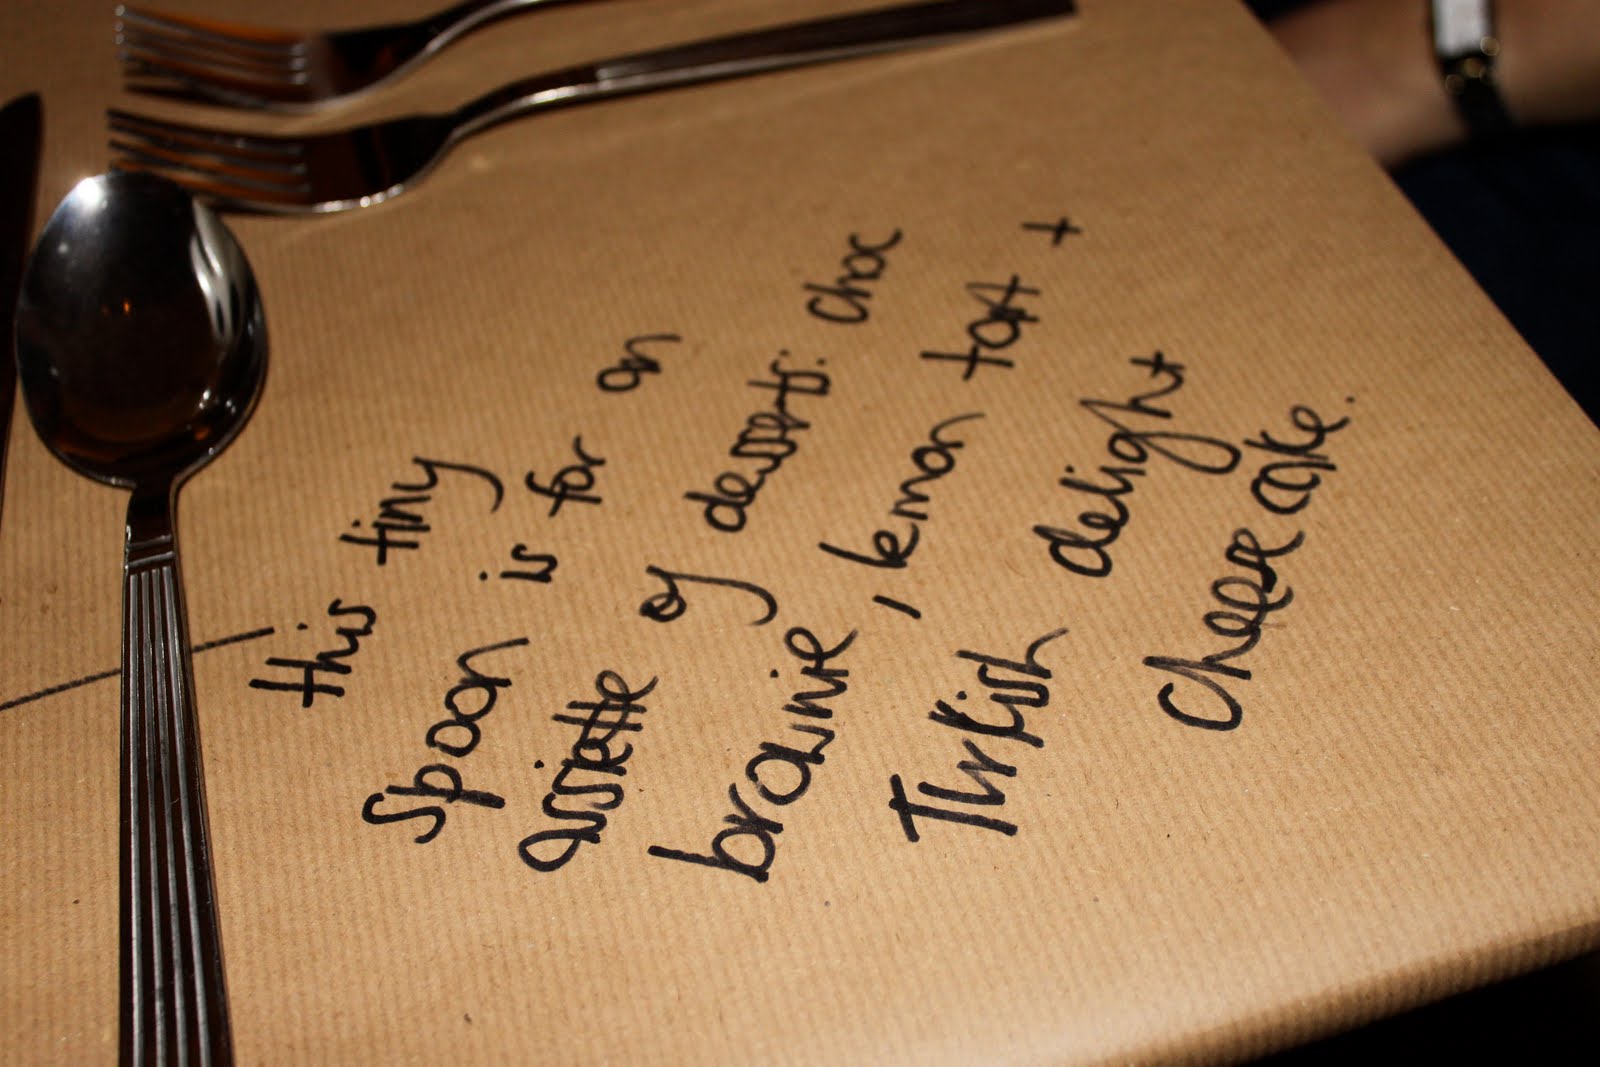 This tiny
spoon is for an
assiette of desserts: choc
brownie, lemon tart +
Turkish delight
cheesecake.